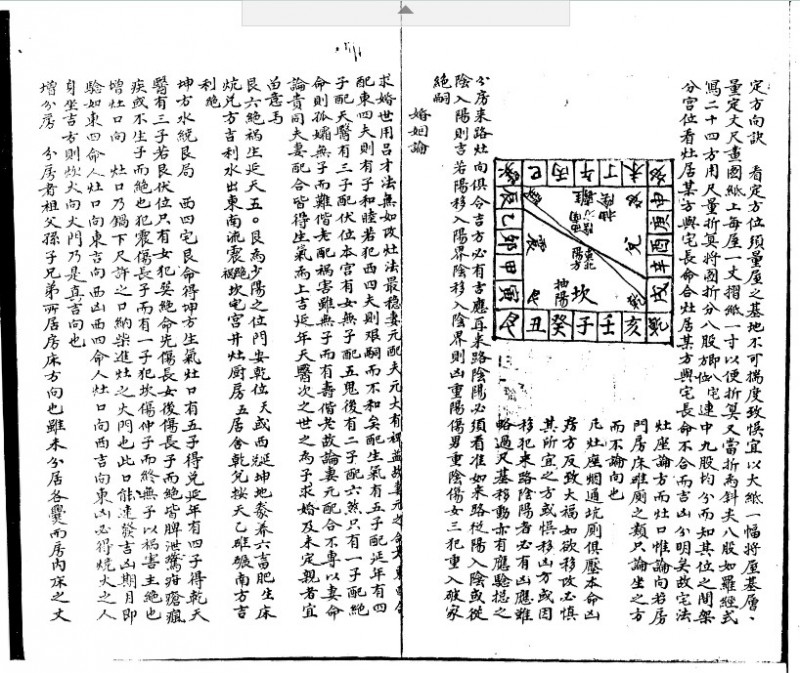 定方向訣　看定方位須量屋之基地不可揣度致悞宜以大紙一幅將屋基層、
量定丈尺畫圖紙上每屋一丈摺紙一寸以便折算又當折為斜夫八股如羅經式
寫二十四方用尺量折算將圖折分八股即八宅連中九股均分而知其位之間架
分宮位看灶居某方與宅長命合灶居某方與宅長命不合而吉凶分明矣故宅法
灶座論方而灶口惟論向若房
門房床碓厠之類只論坐之方
而不論向也
凡灶座烟通坑厠俱壓本命凶
方方反致大福如欲移改必慎
其所宜之方或悞移凶方或因
移犯來路陰陽者必有凶應雖
略過尺基移動亦有應驗 之
巳丙午丁未
辰乙卯甲寅
坤申庚酉辛戌乾
艮丑癸子壬亥
巽
離
坤
震
兌
艮
坎
乾
抽陽
東北陽方
分房來路灶向俱合吉方必有吉應再來路陰陽必須看准如來路從陽入陰或從
陰入陽則吉若陽移入陽界陰移入陰界則凶重陽傷男重陰傷女三犯重入破家
絕嗣
婚姻論
求婚世用呂才法無如改灶法最穩妻元配夫元大有裨益故妻元之命
配東四夫則有子和睦若犯西四夫則艱嗣而不和矣配生氣有五子配延年有四
子配天醫有三子配伏位本宮有女無子配五鬼後有二子配六煞只有一子配絕
命則孤孀無子而難偕老配禍害雖無子而有壽偕老故論妻元配合不專以妻命
論貴司夫妻配合皆得生氣為上吉延年天醫次之世之為子求婚及未定親者宜
留意焉
艮六絕禍生延天五。艮為少陽之位門安乾位天或西兌延坤地豢养六畜肥生床
炕兌方吉利水出東南流震禍絕坎宅宮井灶厨房五居舍乾兌挨天乙碓碾南方吉
利絕
坤方水統艮局　西四宅艮命得坤方生氣灶口有五子得兌延年有四子得乾天
醫有三子若艮伏位只有女犯巽絕命先傷長女後傷長子而絕皆脾泄驚疳瘡瘋
疾或不生子而絕也犯震傷長子而有一子犯坎傷仲子而終無子以禍害主絕也
增灶口向　灶口乃鍋下尺許之口納柴進灶之火門也此口能速發吉凶期月即
驗如東四命人灶口向東吉向西凶西四命人灶口向西吉向東凶必得燒火之人
身坐吉方則炊火向大門乃是真吉向也
增分房　分房者祖父孫子兄弟所居房床方向也雖未分居各爨而房內床之丈